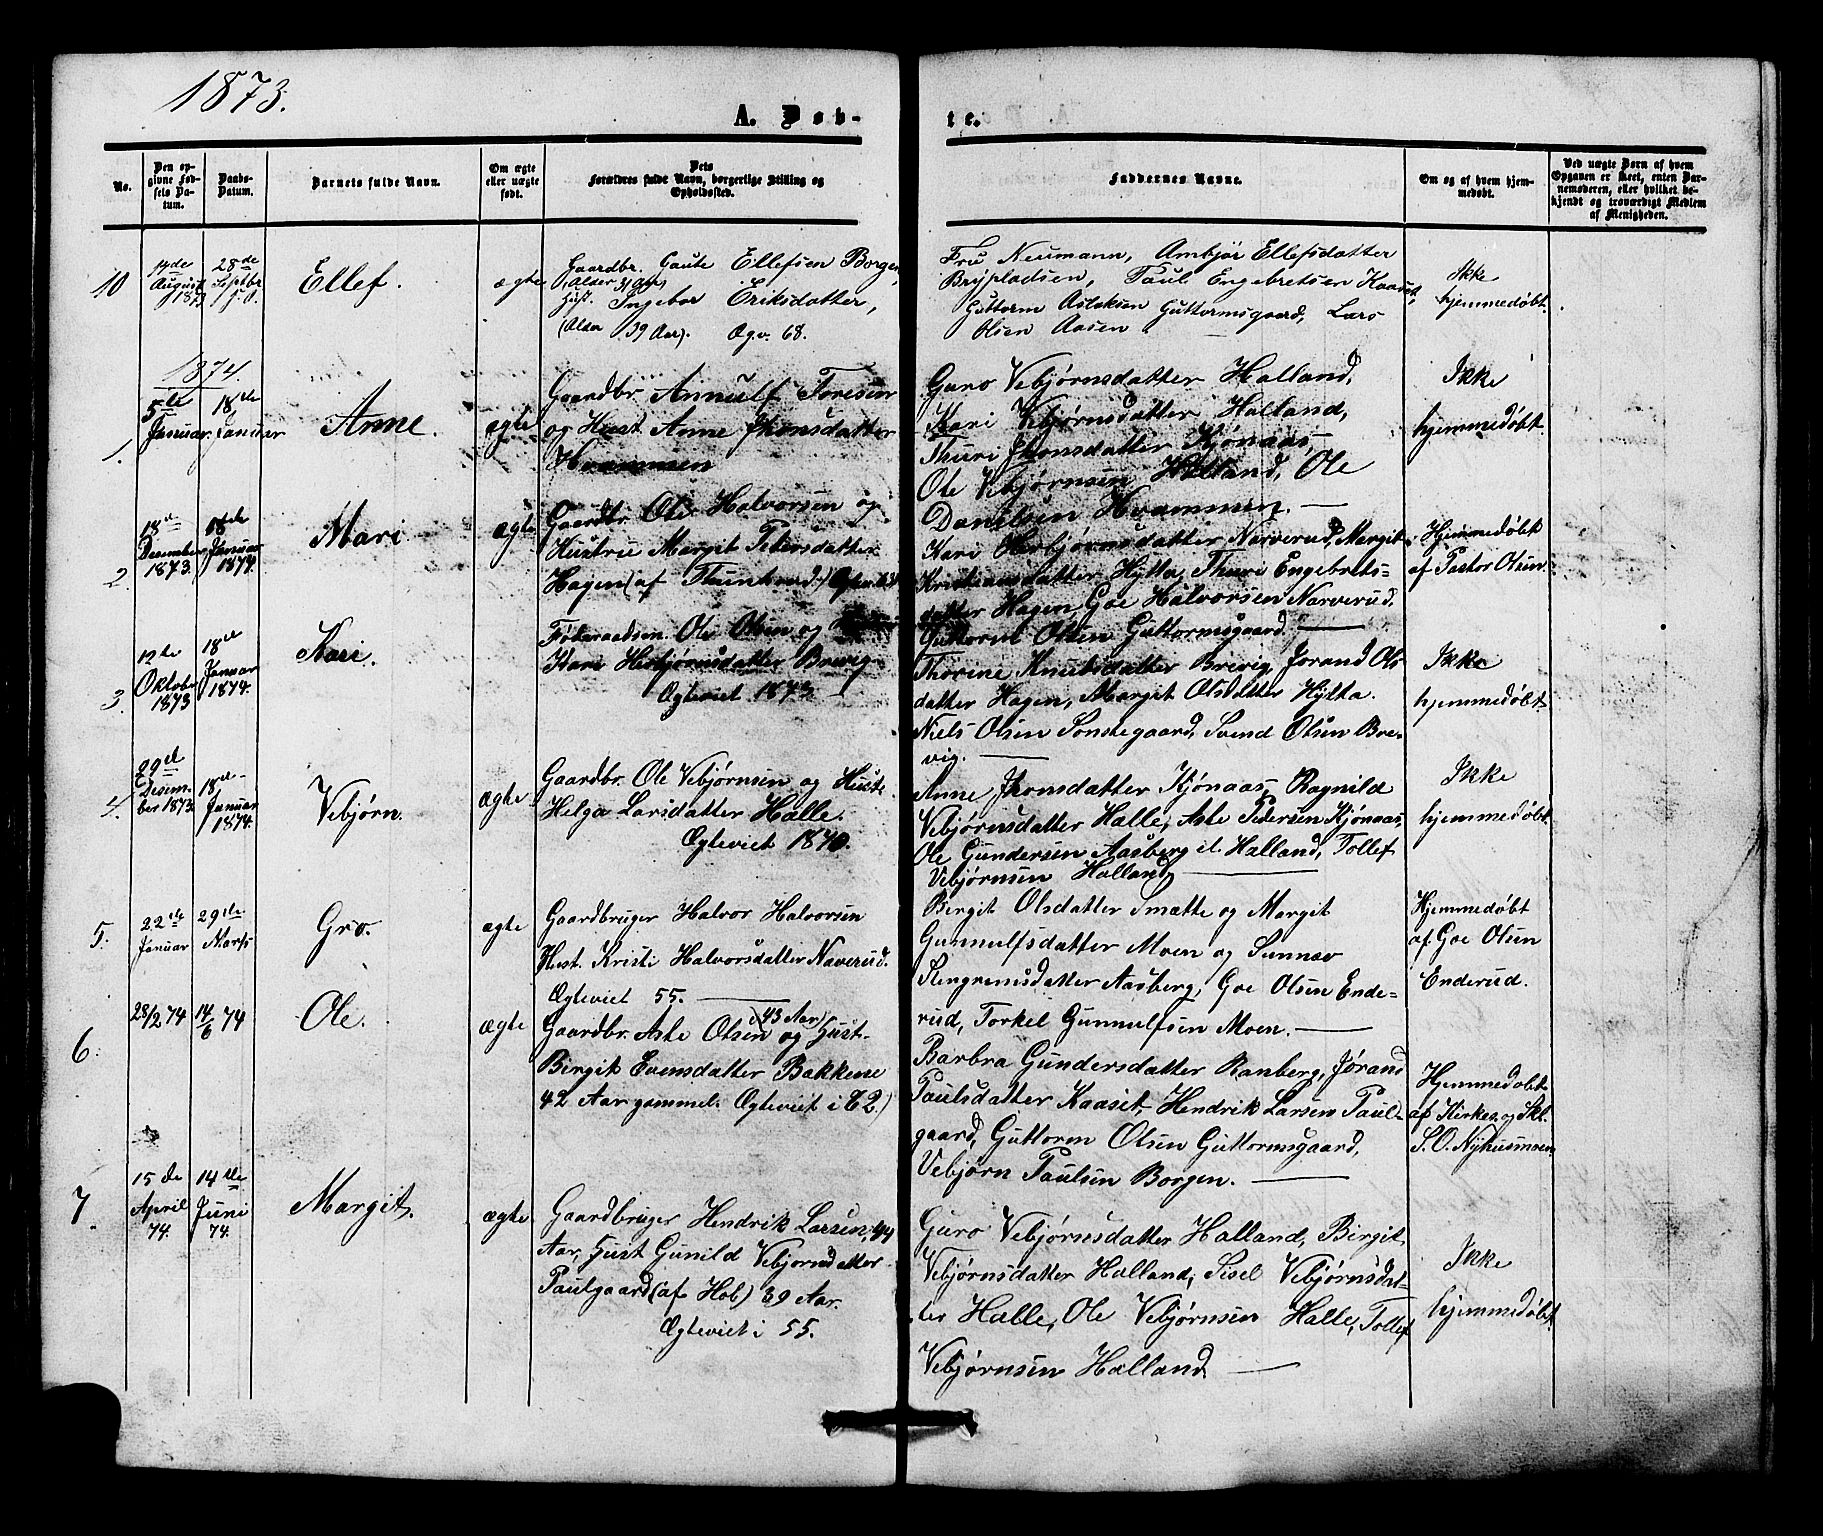 1873.
A. Døb-
te.
No.
Den op-
givne Fød-
sels Da-
tum.
Daabs-
Datum.
Barnets fulde Navn.
Om ægte
eller uægte
født.
Dets
Forældres fulde Navn, borgerlige Stilling og
Opholdssted.
Faddernes Navne.
Om og af hvem hjem-
medøbt.
Ved uægte Børn af hvem
Opgaven er skeet, enten Bar-
nemoderen, eller hvilket be-
kjendt og troværdigt Medlem
af Menigheden.
10
14de
August
1873
28de
Septbr
Ellef.
ægte
Gaardbr. Gaute Ellefsen Borgen,
(Alder 31 Aar)
Hust. Ingebor Eriksdatter,
(Alder 39 Aar). Ægv. 68.
Fru Neumann, Ambjør Ellefsdatter
Brypladsen, Paul Engebretsen Kaaset,
Guttorm Aslaksen Guttormsgaard, Lars
Olsen Aasen
Ikke
hjemmedøbt.
1874.
1.
5te
Januar.
18de
Januar
Anne.
ægte
Gaardbr. Annulf Toresen
og Hust. Anne Jhonsdatter
Hvammen
Guro Vebjørnsdatter Halland,
Kari Vebjørnsdatter Halland,
Thuri Jhonsdatter Kjønaas,
Ole Vebjørnsen Halland, Ole
Danilsen Hvammen. —
Ikke
hjemmedøbt.
2.
18de
Desember
1873.
18de
Januar
1874.
Mari
ægte
Gaardbr. Ole Halvorsen og
Hustru Margit Petersdatter
Hagen (af
Kari Herbjørnsdatter Narverud, Margit
Kristiansdatter Hytta, Thuri Engebrets-
datter Hagen, Goe Halvorsen Narverud,
Guttorm Olsen Guttormsgaard. —
Hjemmedøbt
af Pastor Olsen.
3.
12te
Oktober
1873
18de
Januar
1874.
Kari.
Føderaadsm. Ole Olsen og
Kari Herbjørnsdatter Brevig
Ægteviet 1873
Thorine Knutsdatter Brevig, Jorand Ols
datter Hagen, Margit Olsdatter Hytta.
Niels Olsen Sønstegaard, Svend Olsen Bre-
vig. —
Ikke
hjemmedøbt
4.
29de
Desem-
ber 1873.
18de
Januar
1874.
Vebjørn.
ægte
Gaardbr. Ole Vebjørnsen og Hust.
Helga Larsdatter Halle.
Ægteviet 1870.
Anne Jhonsdatter Kjønaas, Ragnild
Vebjørnsdatter Halle, Asle Pedersen Kjønaas,
Ole Gundersen Aasberg il. Halland, Tollef
Vebjørnsen Halland, —
Ikke
hjemmedøbt.
5.
22de
Januar
29de
Marts
Gro.
ægte
Gaardbruger Halvor Halvorsen
Hust. Kristi Halvorsdatter Naverud.
Ægteviet 55. —
Birgit Olsdatter Smætte og Margit
Gunnulfsdatter Moen og Sunnev
Stengrimsdatter Aasberg, Goe Olsen Ende-
rud, Torkel Gunnulfsen Moen. —
Hjemmedøbt
af Goe Olsen
Enderud.
6.
28/2 74
14/6 74
Ole.
ægte
(43 Aar)
Gaardbr. Asle Olsen og Hust.
Birgit Evensdatter Bakkene
42 Aar gammel. Ægteviet i 62.)
Barbra Gundersdatter Ranberg, Jørand
Paulsdatter Kaaset, Hendrik Larsen Paul-
gaard, Guttorm Olsen Guttormsgaard,
Vebjørn Paulsen Borgen. —
Hjemmedøbt
af Kirkes. og Skl.
S. O. Nyhusmoen.
7.
15de
April
74.
14de
Juni
74.
Margit.
ægte
Gaardbruger Hendrik Larsen, 44
Aar, Hust Gunild Vebjørnsdatter
Paulgaard (af Hob) 39 Aar.
Ægteviet i 55.
Guro Vebjørnsdatter Halland, Birgit
Vebjørnsdatter Halland, Sisel Vebjørnsdat-
ter Halle, Ole Vebjørnsen Halle, Tollef
Vebjørnsen Halland. —
Ikke
hjemmedøbt